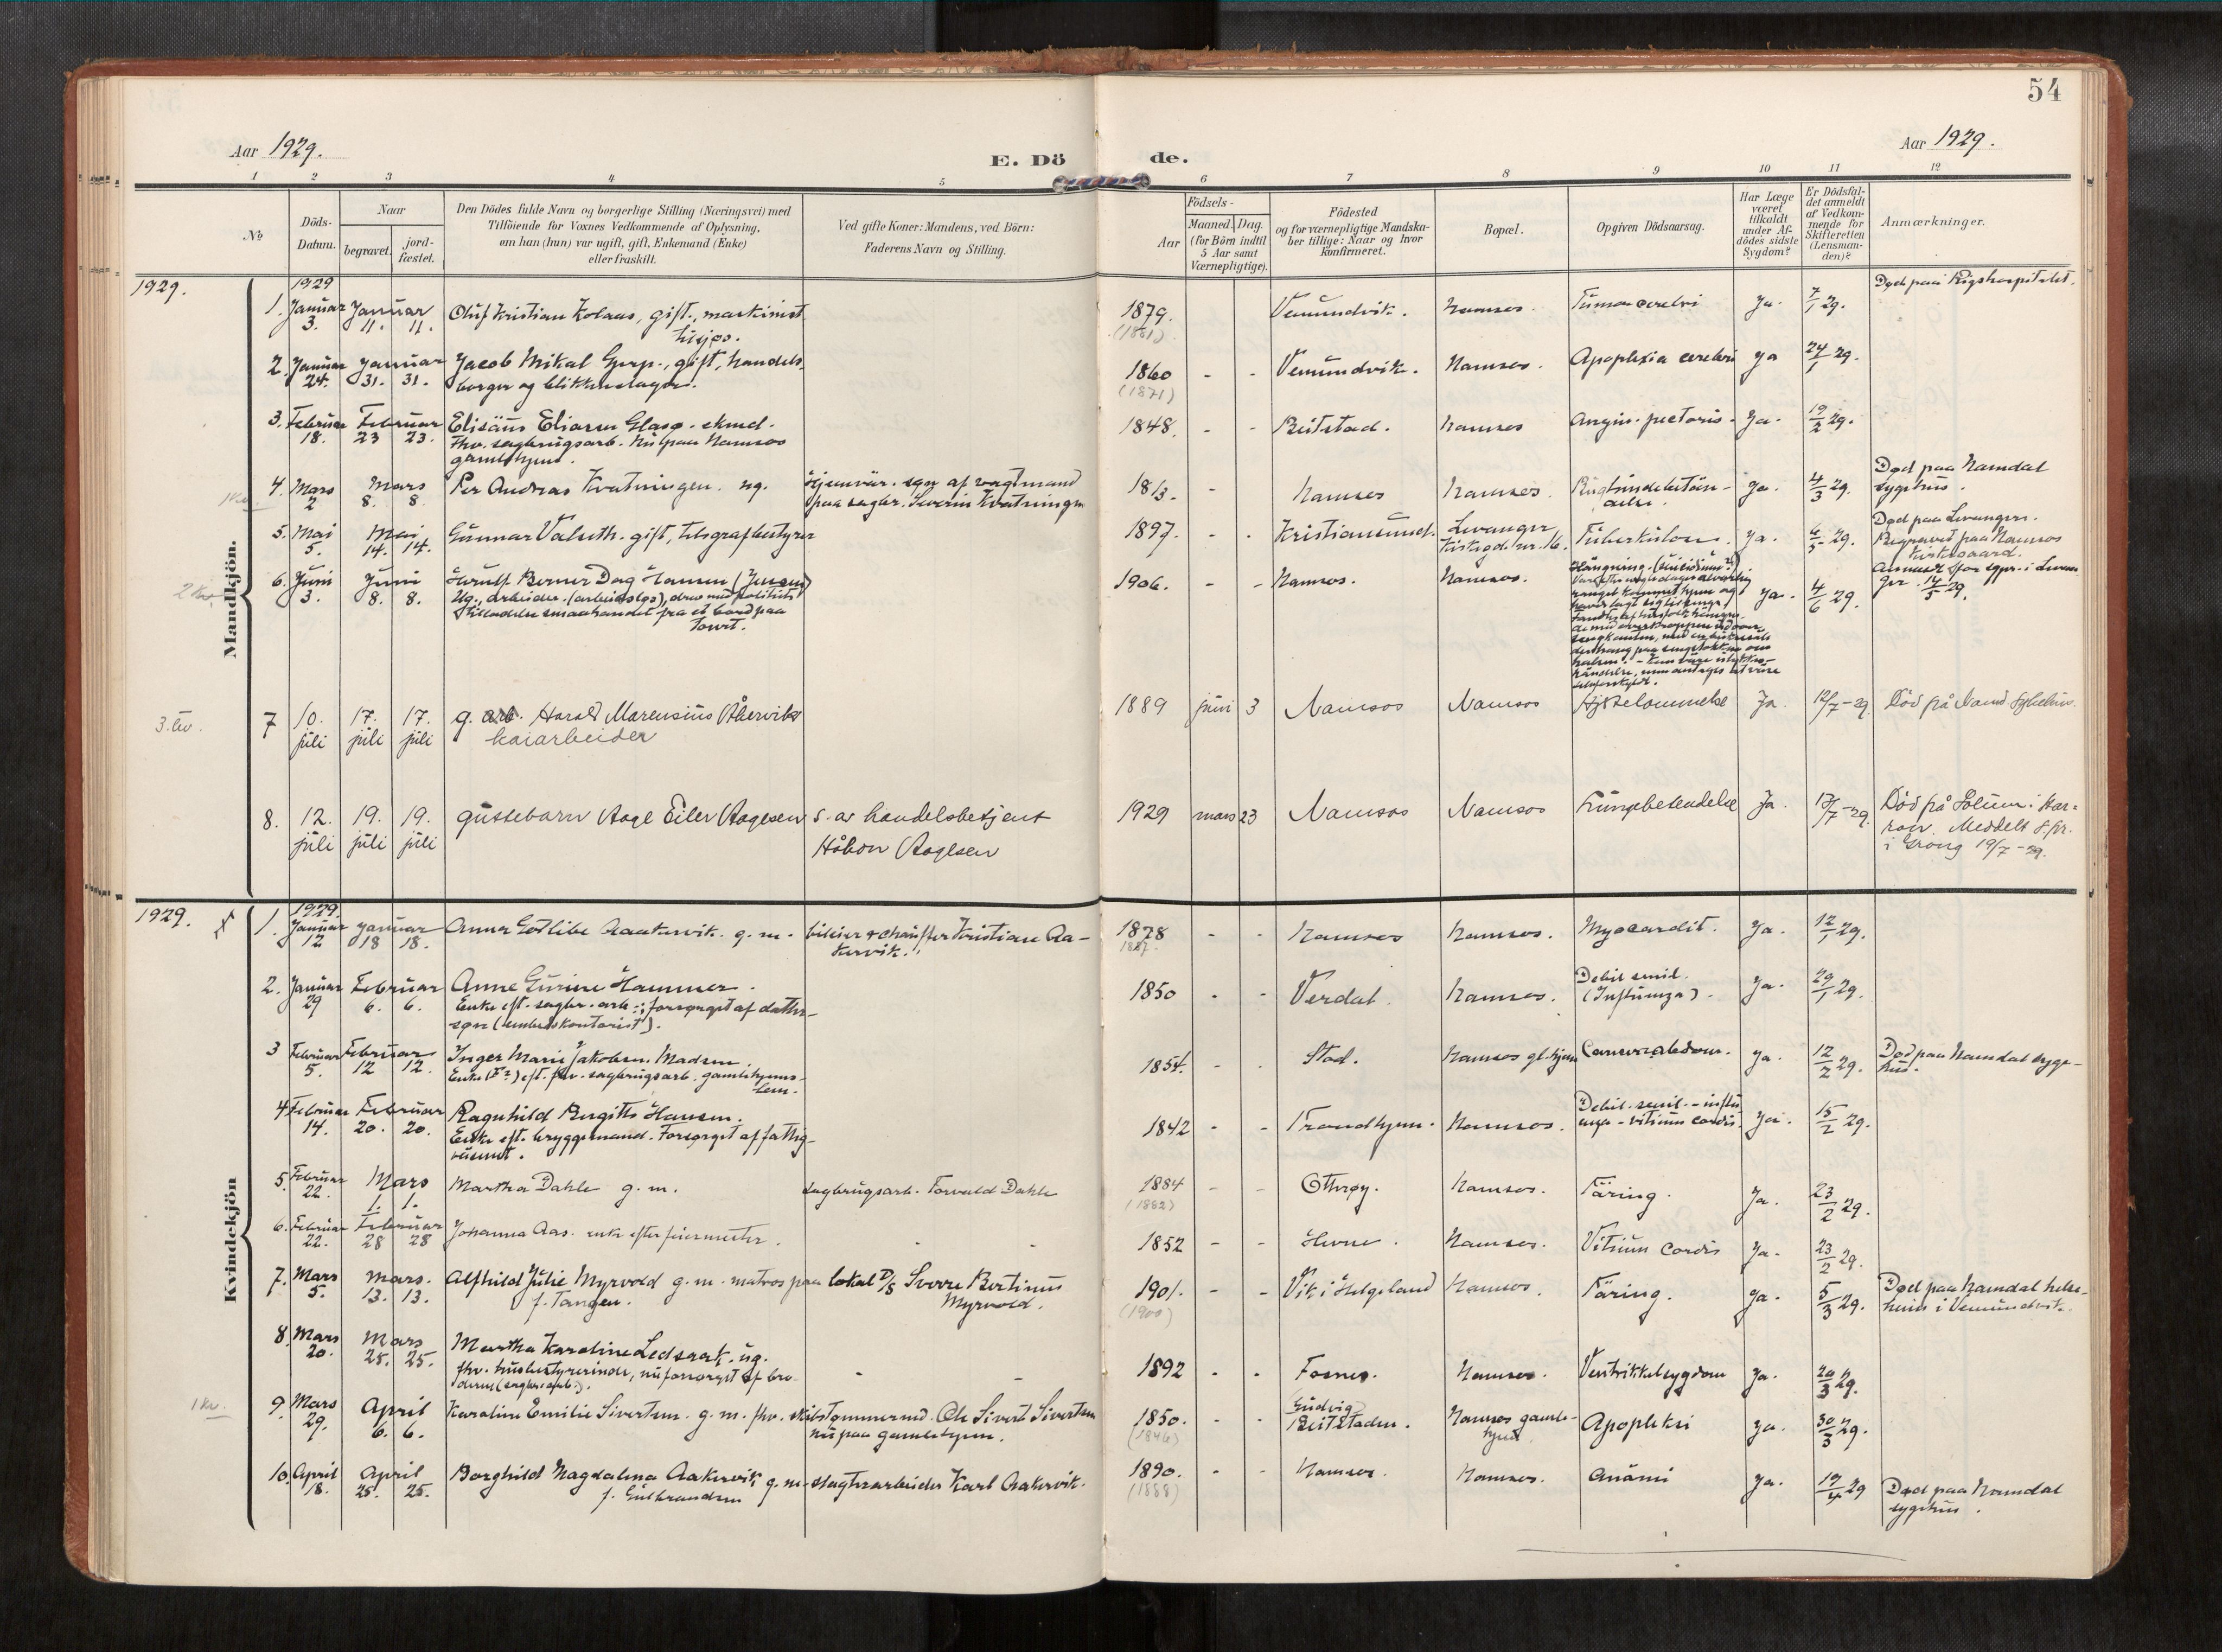 54
Aar 1929.
E. Dö de.
Aar 1929.
1 2 3 4 5 6 7 8 9 10 11 12
No
Döds-Datum.
Naar
begravet.
jord-fæstet.
Den Dödes fulde Navn og borgerlige Stilling (Næringsvei) med
Tilföiende for Voxnes Vedkommende af Oplysning,
om han (hun) var ugift, gift, Enkemand (Enke)
eller fraskilt.
Ved gifte Koner: Mandens, ved Börn:
Faderens Navn og Stilling.
Födsels-
Aar
Maaned. Dag.
(for Börn indtil
5 Aar samt
Værnepligtige).
Födested
og for værnepligtige Mandska-
ber tillige: Naar og hvor
konfirmeret.
Bopæl.
Opgiven Dödsaarsag.
Har Læge
været
tilkaldt
under Af-
dödes sidste
Sygdom?
Er Dödsfal-
det anmeldt
af Vedkom-
mende for
Skifteretten
(Lensman-
den)?
Anmærkninger.
Mandkjön.
1929.
1929
1. Januar 3. Januar 11. 11. Oluf Kristian Kolaas, gift, maskinist 1879. (1881) Vemundvik. Namsos. Tumor cerebri Ja. 7/1 29. Død paa Rigshospitalet.
2. Januar 24. Januar 31. 31. Jacob Mikal Gjerp., gift, handels-
borger og blikkenslager. 1860 (1871) - - Vemundvik. Namsos. Apoplexia cerebri ja 24/1 29.
3. Februar 18. Februar 23 23. Elisäus Eliasen Glasø. ekmd.
fhv. sagbrugsarb. nu paa Namsos
gamlehjem. 1848. - - Beitstad. Namsos Angin. pectoris. Ja. 19/2 29.
1 kv. 4. Mars 2 Mars 8. 8. Per Andreas Kvatningen. ug. hjemvär. søn af vagtmand
paa sagbr. Severin Kvatningen - Namsos Namsos. ja. 4/3 29. Død paa Namdal
sygehus.
5. Mai 5. Mai 14. 14. Gunnar Valseth. gift, telegrafbestyrer 1897. - - Kristiansund. Levanger,
Kirkegd. nr. 16. Tuberkulose. ja. 6/5 29. Død paa Levanger.
Begravet paa Namsos
kirkegaard.
Anmeldt for sgpr. i Levan-
ger 14/5 29.
2 kv. 6. Juni 3. Juni 8. 8. Berner Dag Hansen (Jensen)
Ug., arbeider (arbeidsløs), drev med politiets
tilladelse smaahandel fra et bord paa
torvet. 1906. - - Namsos. Namsos. Hängning. (suicidium?) ja. 4/6 29.
3. kv. 7 10. juli 17. juli 17. juli g. arb. Harold Marensius Åkervik
kaiarbeider 1889 juni 3 Namsos Namsos Hjertelammelse Ja. 12/7-29 Död på Namd. sykehus.
8. 12. juli 19. juli 19. juli guttebarn Aage Eiler Aagesen s. av handelsbetjent
Håkon Aagesen 1929 mars 23 Namsos Namsos Lungebetendelse Ja. 17/7-29. Död på Solum i Har-
ran. Meddelt s.pr.
i Grong 19/7-29.
Kvindekjön
1929.
1929.
1. Januar 12 Januar 18 18. Anna Gotlibe Aakervik. g. m. bileier & chauffør Kristian Aa-
kervik. 1878 1887. - - Namsos Namsos. Myocardit. Ja. 12/1 29.
2. Januar 29 Februar 6. 6. Anne Gurine Hammer.
Enke eft. sagbr. arb.; forsørget af datter-
søn (kontorist). 1850 - - Verdal. Namsos. Debil. senil.
(Influenza). Ja. 29/1 29.
3 Februar 5. Februar 12 12. Inger Marie Jakobsen. Madsen
Enke (F?) eft. fhv. sagbrugsarb. gamlehjems-
lem. 1854. - - Stod. Namsos gl.hjem ja. 12/2 29. Død paa Namdal syge-
hus.
4 Februar 14. Februar 20. 20. Ragnhild Birgitte Hansen.
Enke eft. bryggemand. Forsørget af fattig-
väsenet. 1842 - - Trondhjem. Namsos. Debil. senil. - influ-
enza - vitium cordis. Ja. 15/2 29.
5. Februar 22. Mars 1. 1. Martha Dahle g. m. sagbrugsarb. Torvald Dahle 1884 (1882) - - Otterøy. Namsos. Täring. Ja. 23/2 29.
6. Februar 22. Februar 28 28 Johanna Aas. enke efter feiermester. 1852 - - Hevne. Namsos. Vitium cordis Ja. 23/2 29.
7. Mars 5. Mars. 13. 13. Alfhild Julie Myrvold g. m. matros paa lokal D/S Sverre Bertinus
f. Tangen. Myrvold. 1901. (1900) - - Vik i Helgeland Namsos. Täring. ja. 5/3 29. Død paa Namdal helse-
heim i Vemundvik.
8. Mars 20. Mars 25. 25. Martha Karoline Ledsaak. ug.
fhv. husbestyrerinde, nu forsørget af bro-
deren (sagbr. arb.). 1892 - - Fosnes. Namsos. Ventrikkelsygdom Ja. 20/3 29.
1 kv. 9. Mars 29. April 6. 6. Karoline Emilie Sivertsen. g. m. fhv. skibstømmermd. Ole Sivert Sivertsen
nu paa gamlehjem. 1850. (1846) - - Beitstaden. Namsos gamle-
hjem Apopleksi ja. 30/3 29.
10. April 18. April 25. 25. Borghild Magdalena Aakervik g. m. slagteriarbeider Karl Aakervik.
f. Gulbrandsen 1890. (1888) - - Namsos. Namsos. Anämi ja. 19/4 29 Død paa Namdal
sygehus.